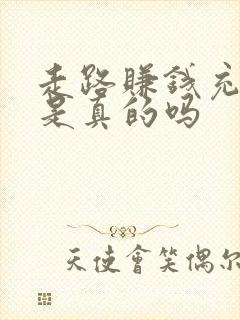 走路赚钱充
是真的吗
天使會笑偶尔